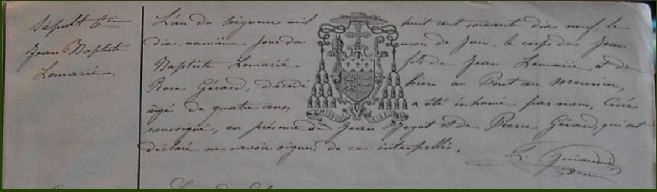 Sépult
Jean Baptiste
Lemarié.
L'an du Seigneur mil huit cent soixante dix neuf, le
dix neuvième jour du mois de Juin, le corps de Jean
Baptiste Lemarié fils de Jean Lemarié, et de
Rose Gérard, décédé hier au Pont au meunier,
âgé de quatre ans, a été inhumé par nous, Curé
soussigné, en présence de Jean et de Pierre Gérard, qui ont
déclaré ne savoir signer de ce interpellés.